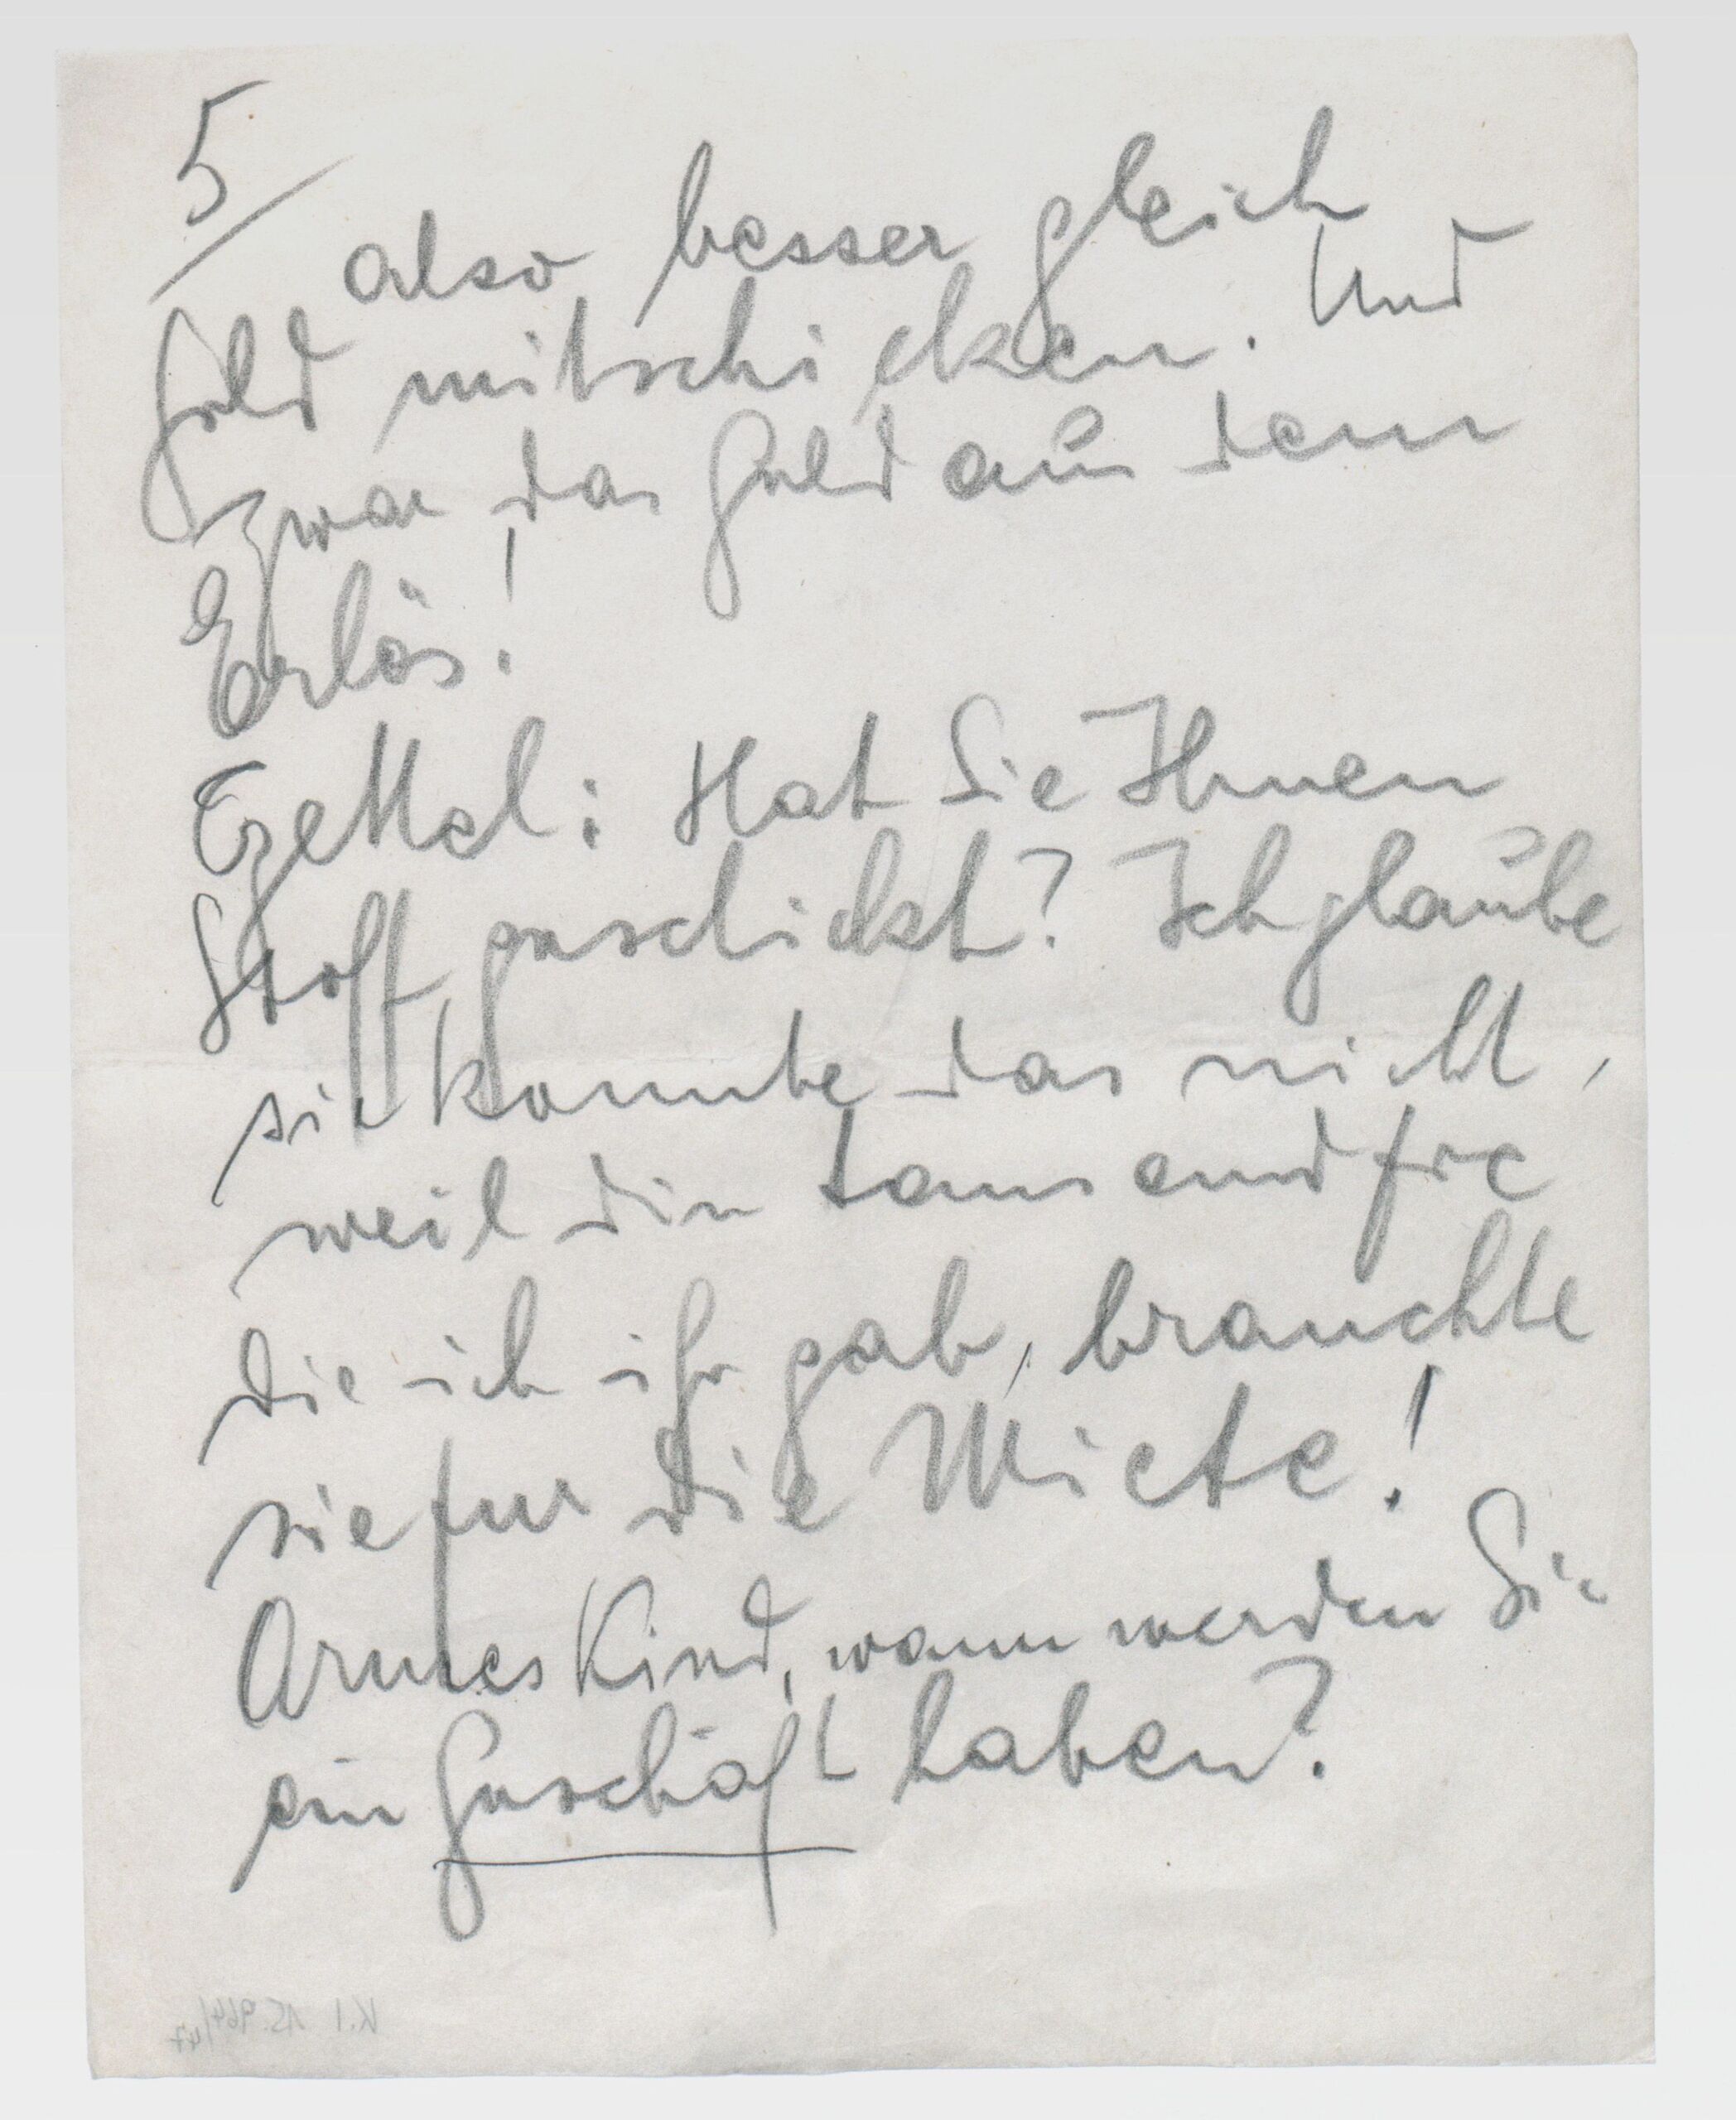 5/
also besser gleich
Geld mitschicken. Und
zwar das Geld aus dem
Erlös!
Czettel: Hat Sie Ihnen
Stoff geschickt? Ich glaube
sie konnte das nicht,
weil die tausend frc
die ich ihr gab, brauchte
sie fur die Miete!
Armes Kind, wann werden Sie
ein Geschäft haben?
K.I. 15.964/47